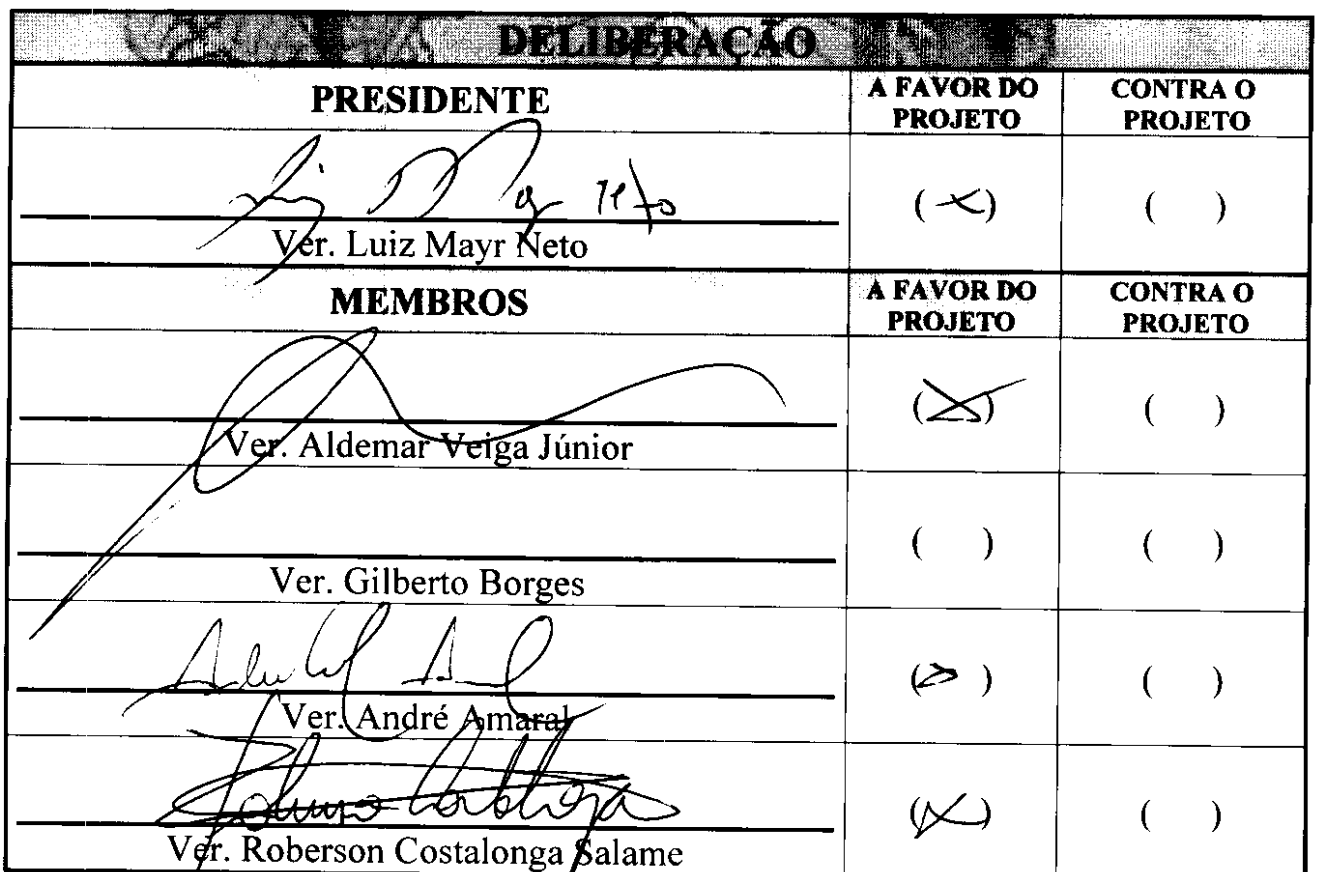 DELIBERAÇÃO
PRESIDENTE A FAVOR DO PROJETO CONTRA O PROJETO
( X ) ( )
Ver. Luiz Mayr Neto
MEMBROS A FAVOR DO PROJETO CONTRA O PROJETO
( X ) ( )
Ver. Aldemar Veiga Júnior
( ) ( )
Ver. Gilberto Borges
( ) ( )
Ver. André Amaral
( X ) ( )
Ver. Roberson Costalonga Salame